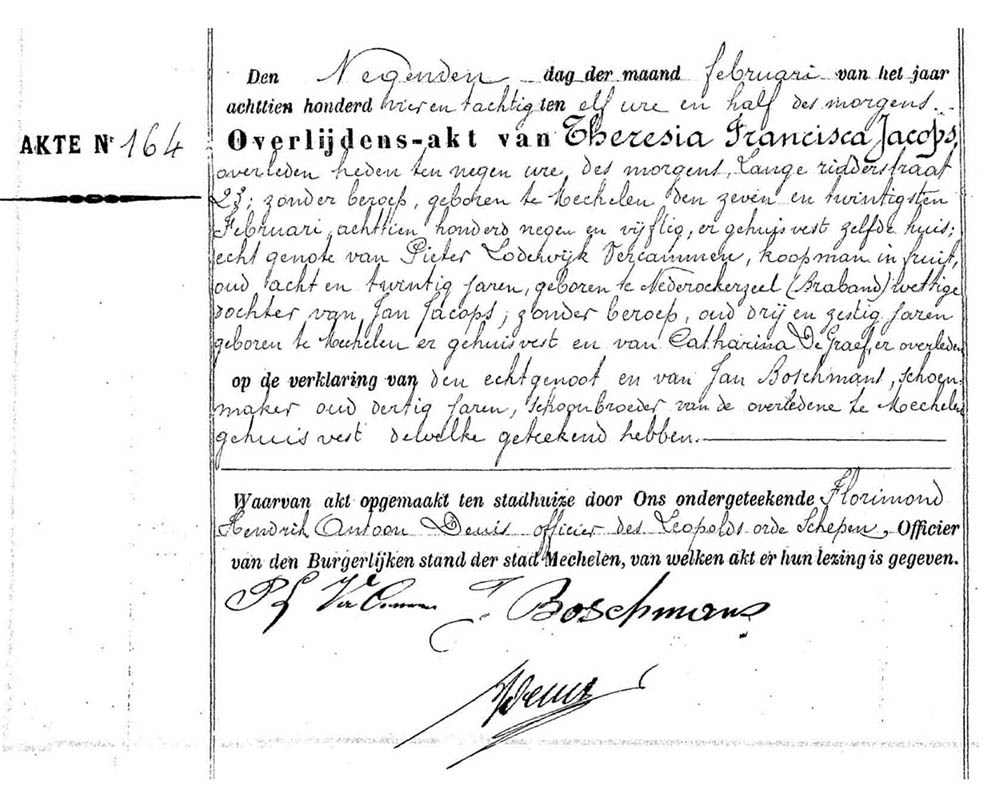 Den Negenden dag der maand februari van het jaar
achttien honderd vier en tachtig ten elf ure en half des morgens.
AKTE Nr 164
Overlijdens-akt van Theresia Francisca Jacops,
overleden heden ten negen ure, des morgens, Lange ridderstraat
23; zonder beroep, geboren te Mechelen den zeven en twintigsten
Februari, achttien honderd negen en vijftig, er gehuisvest zelfde huis;
echtgenote van Pieter Lodewijk Vercammen, koopman in fruit,
oud acht en twintig jaren, geboren te Nederockerzeel (Braband) wettige
dochter van, Jan Jacops; zonder beroep, oud drij en zestig jaren
geboren te Mechelen er gehuisvest en van Catharina De Graef, er overleden
op de verklaring van den echtgenoot en van Jan Boschmans, schoen-
maker oud dertig jaren, schoonbroeder van de overledene te Mechelen
gehuisvest dewelke geteekend hebben.
Waarvan akt opgemaakt ten stadhuize door Ons ondergeteekende Florimond
Hendrik Antoon Denis officier des Leopolds orde Schepen, Officier
van den Burgerlijken stand der stad Mechelen, van welken akt er hun lezing is gegeven.
PL VerCammen J. Boschmans